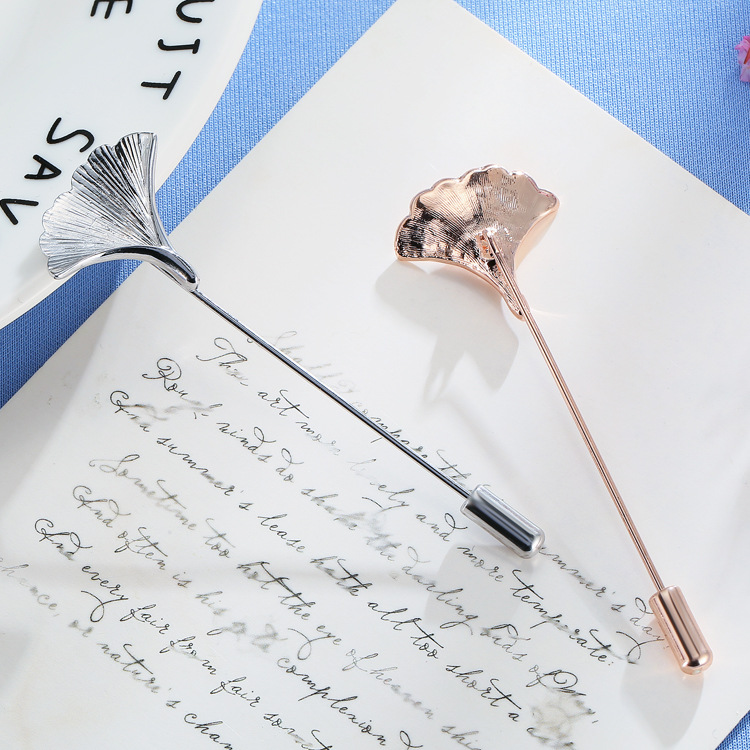 UST
E
SAY
Shall I compare th mmer's day
Thou art more lovely and more temperate:
Rough winds do shake the darling buds of May,
And a summer's lease hath all too short a
Sometime too hot the eye of heaven
And often is his gold complexion
And every fair from fair some
chance, or nature's chan